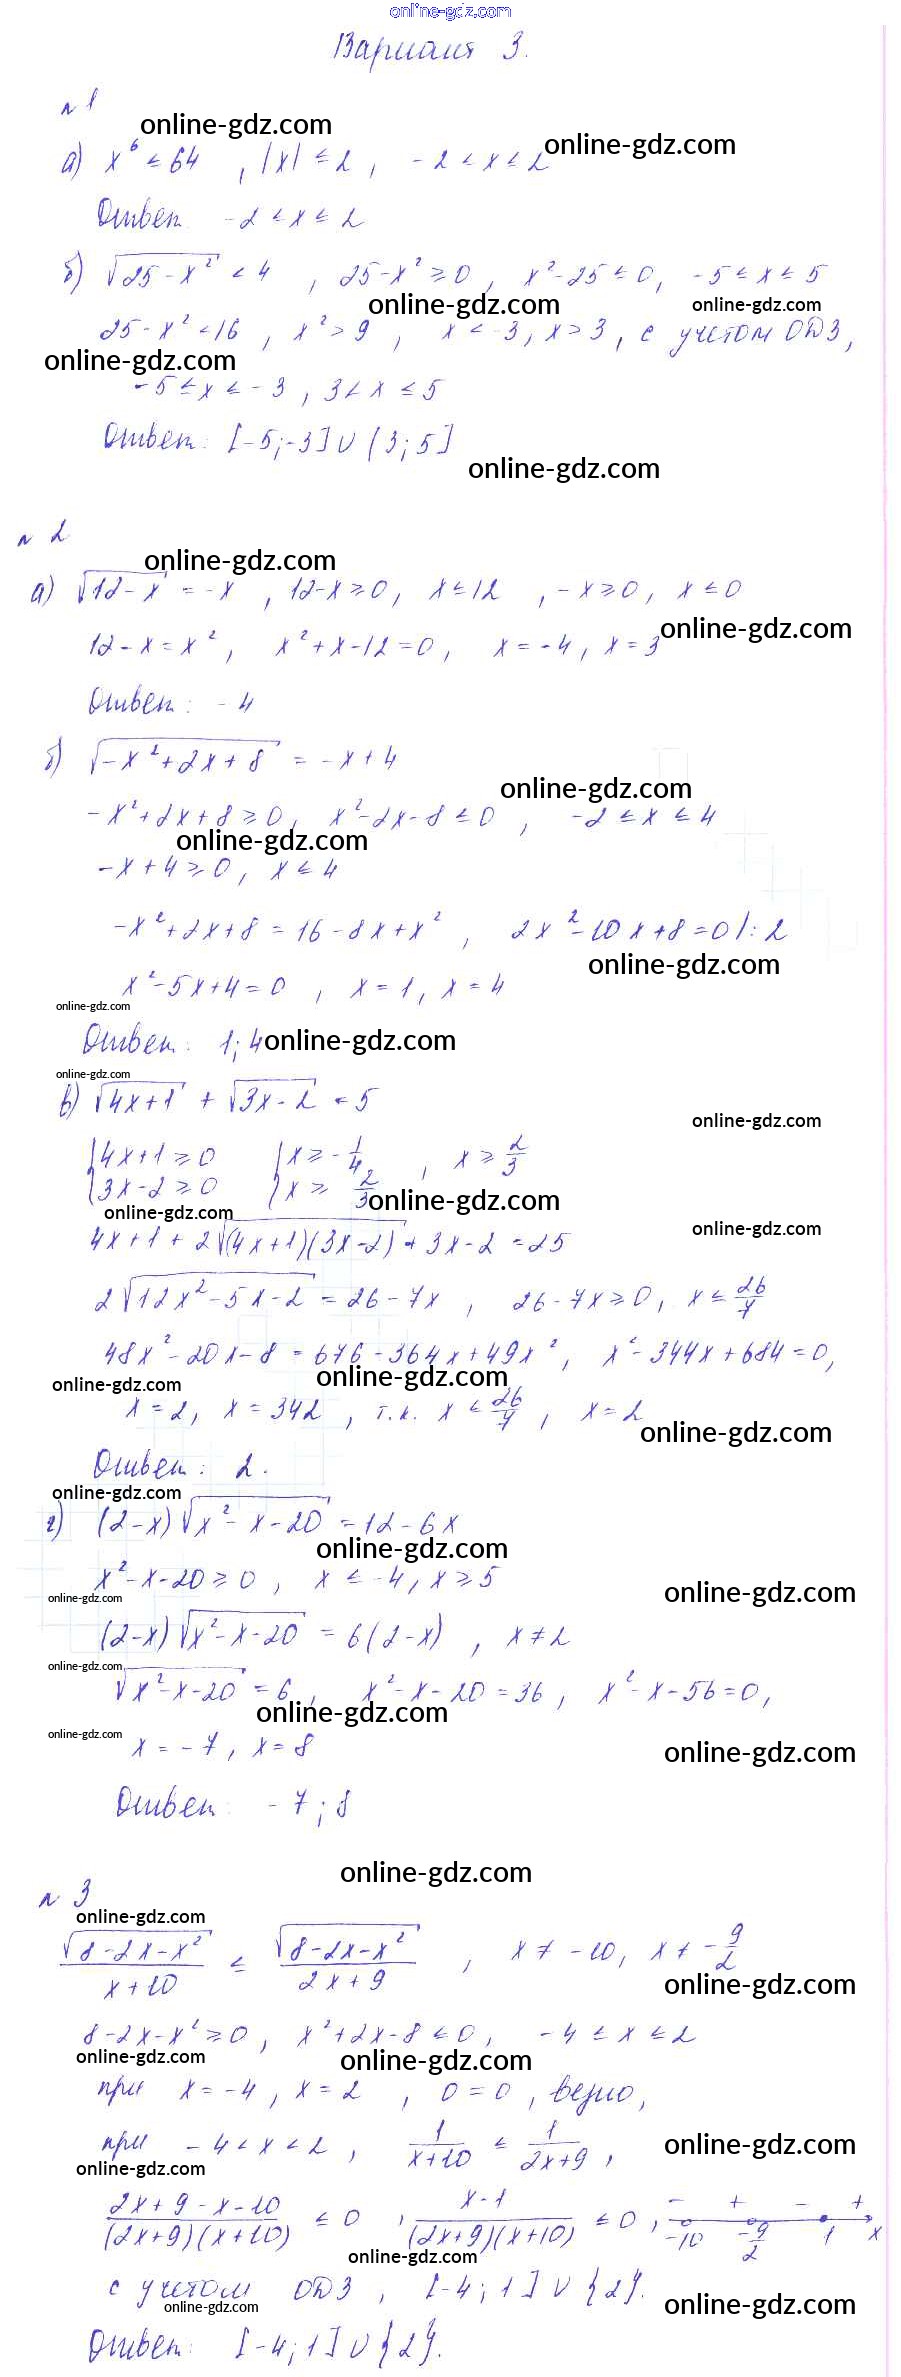 online-gdz.com
Вариант 3.
n 1
online-gdz.com
online-gdz.com
а) x⁶ ≤ 64 , |x| ≤ 2 , -2 ≤ x ≤ 2
Ответ: -2 ≤ x ≤ 2
б) √(25-x²) < 4 , 25-x² ≥ 0 , x²-25 ≤ 0, -5 ≤ x ≤ 5
online-gdz.com
online-gdz.com
25-x² < 16 , x² > 9 , x < -3, x > 3 , с учетом ОДЗ,
online-gdz.com
-5 ≤ x < -3 , 3 < x ≤ 5
Ответ: [-5;-3] ∪ (3; 5]
online-gdz.com
n 2
online-gdz.com
а) √(12-x) = -x , 12-x ≥ 0, x ≤ 12 , -x ≥ 0, x ≤ 0
online-gdz.com
12-x = x² , x²+x-12=0, x = -4, x = 3
Ответ: -4
б) √(-x²+2x+8) = -x+4
online-gdz.com
-x²+2x+8 ≥ 0, x²-2x-8 ≤ 0 , -2 ≤ x ≤ 4
online-gdz.com
-x+4 ≥ 0, x ≤ 4
-x²+2x+8 = 16-8x+x² , 2x²-10x+8=0 |:2
online-gdz.com
x²-5x+4=0 , x=1, x=4
online-gdz.com
Ответ: 1; 4
online-gdz.com
online-gdz.com
в) √(4x+1) + √(3x-2) = 5
online-gdz.com
{4x+1 ≥ 0 {x ≥ -1/4 , x ≥ 2/3
{3x-2 ≥ 0 {x ≥ 2/3
online-gdz.com
online-gdz.com
online-gdz.com
4x+1+2√((4x+1)(3x-2)) + 3x-2 = 25
2√(12x²-5x-2) = 26-7x , 26-7x ≥ 0, x ≤ 26/7
48x²-20x-8 = 676-364x+49x², x²-344x+684=0,
online-gdz.com
online-gdz.com
x=2, x=342 , т.к. x ≤ 26/7 , x=2
online-gdz.com
Ответ: 2.
online-gdz.com
г) (2-x)√(x²-x-20) = 12-6x
online-gdz.com
x²-x-20 ≥ 0 , x ≤ -4, x ≥ 5
online-gdz.com
online-gdz.com
(2-x)√(x²-x-20) = 6(2-x) , x ≠ 2
online-gdz.com
√(x²-x-20) = 6 , x²-x-20=36 , x²-x-56=0,
online-gdz.com
online-gdz.com
x = -7, x = 8
online-gdz.com
Ответ: -7; 8
online-gdz.com
n 3
online-gdz.com
√(8-2x-x²)/(x+10) ≤ √(8-2x-x²)/(2x+9) , x ≠ -10, x ≠ -9/2
online-gdz.com
8-2x-x² ≥ 0 , x²+2x-8 ≤ 0, -4 ≤ x ≤ 2
online-gdz.com
online-gdz.com
при x = -4, x = 2 , 0 = 0 , верно,
при -4 < x < 2 , 1/(x+10) ≤ 1/(2x+9) ,
online-gdz.com
online-gdz.com
(2x+9-x-10)/((2x+9)(x+10)) ≤ 0 , (x-1)/((2x+9)(x+10)) ≤ 0 , - + - + -10 -9/2 1 x
online-gdz.com
с учетом ОДЗ , [-4; 1] ∪ {2}.
online-gdz.com
online-gdz.com
Ответ: [-4; 1] ∪ {2}.